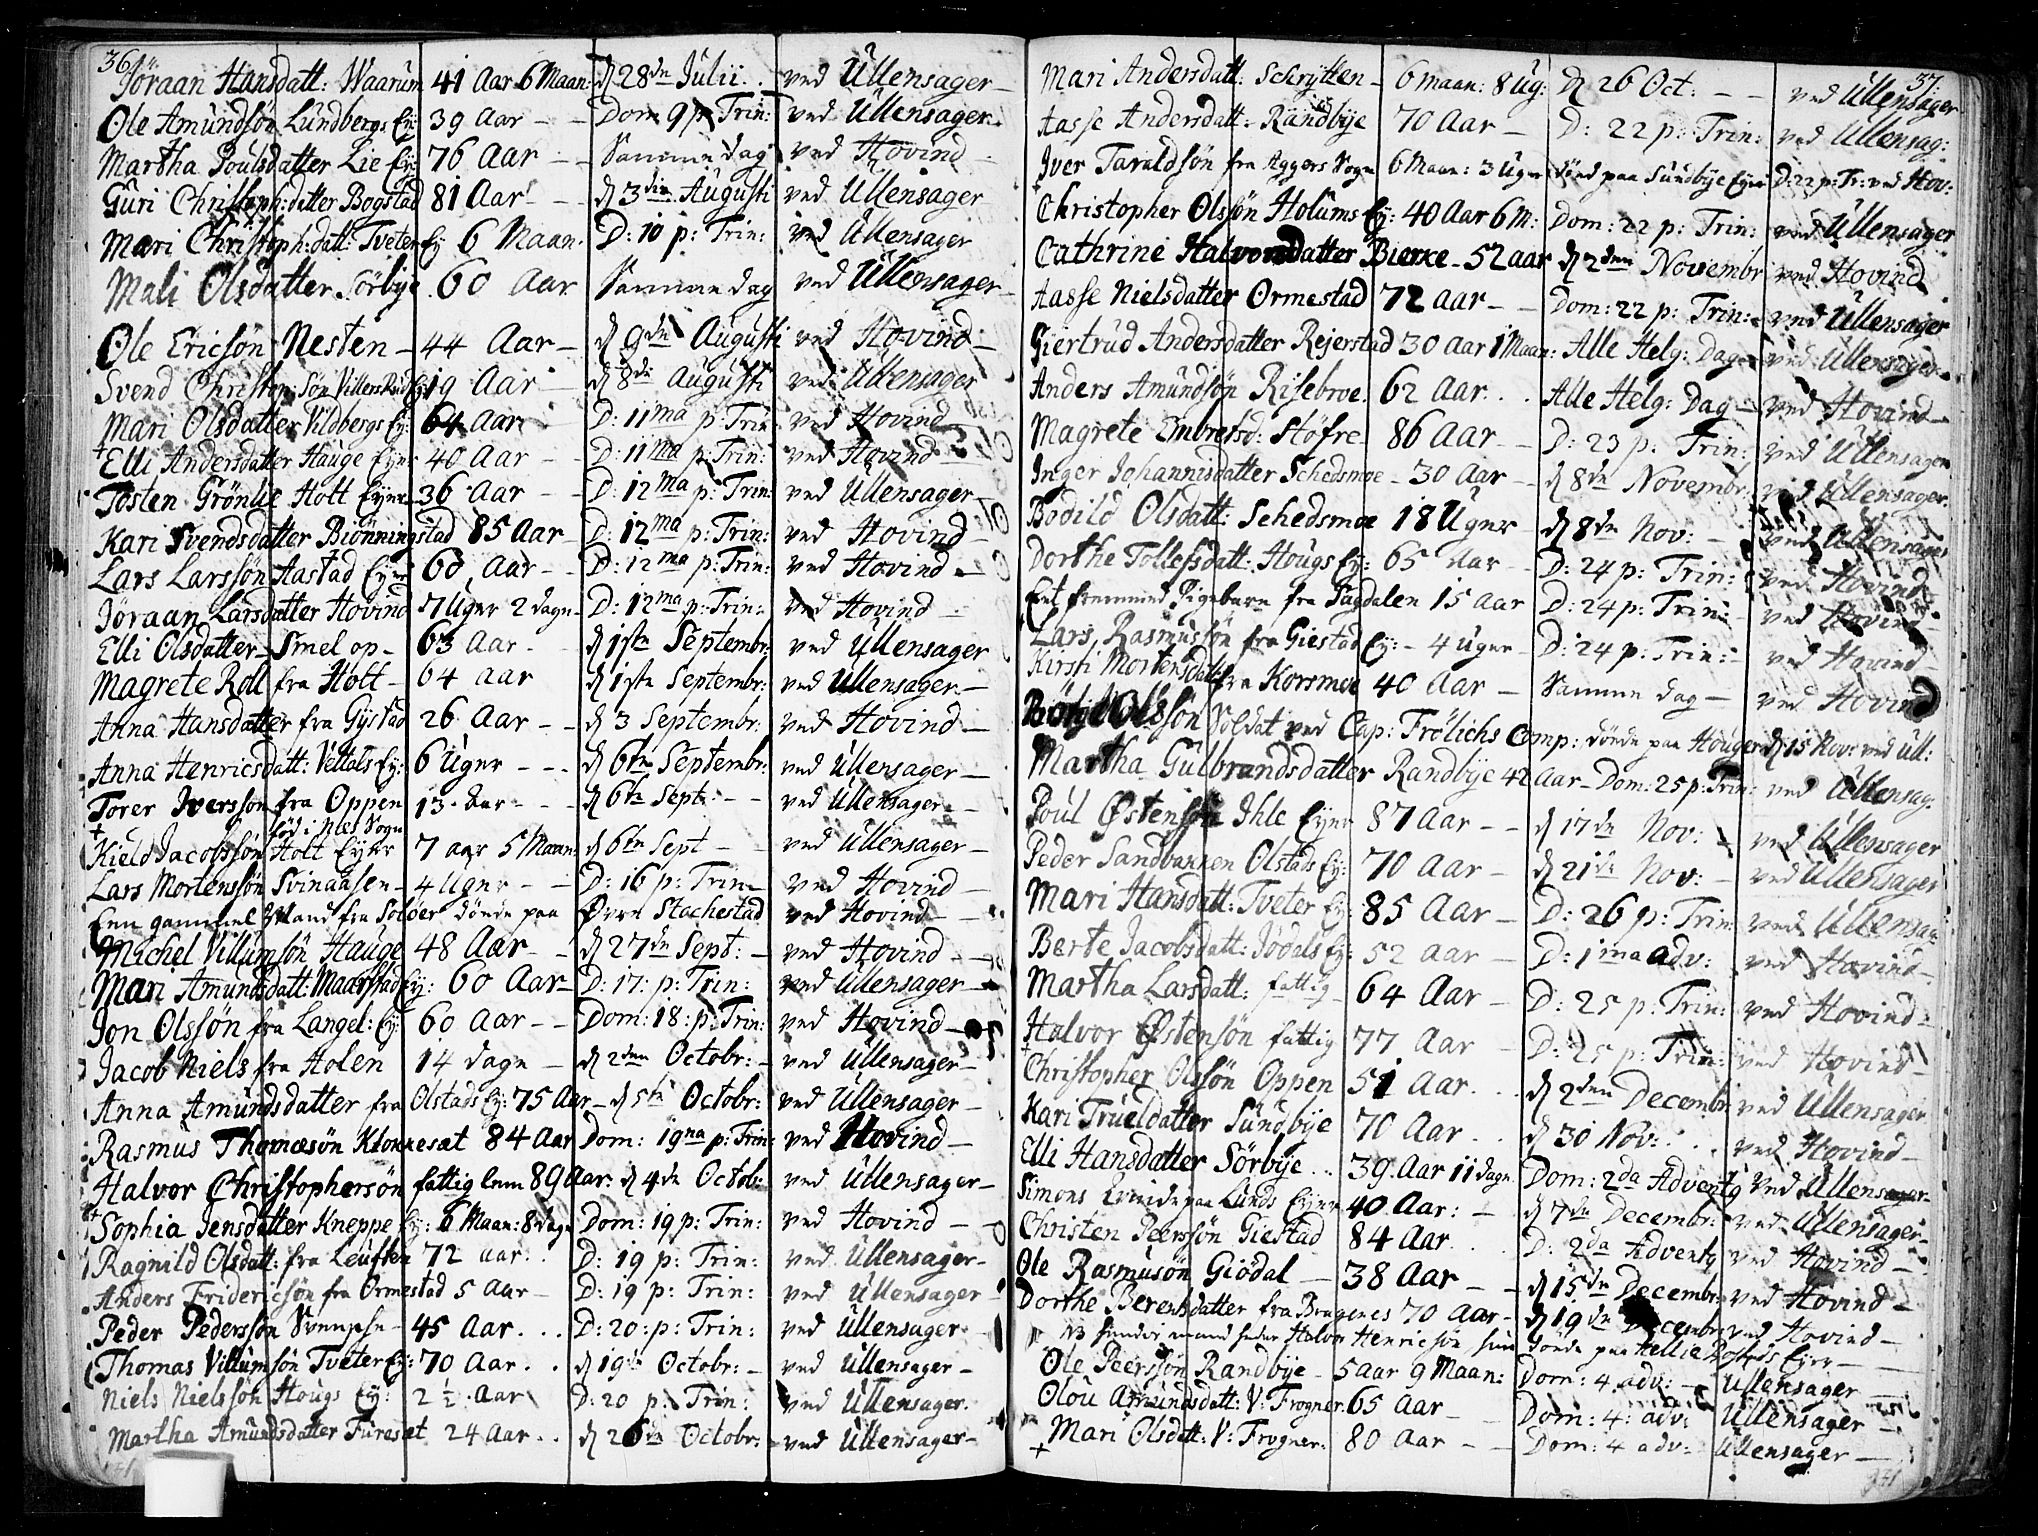 36.
Jöraan Hansdatt: Waarum 41 Aar 6 Maan: d 28de Julii. ved Ullensager
Ole Amundsön Lundbergs Ey: 39 Aar Dom 9 p: Trin: ved Ullensager
Martha Poulsdatter Lie Ey: 76 Aar Samme dag ved Hovind
Guri Christoph:datter Bogstad 81 Aar d 3die Augusti ved Ullensager
Mari Christoph:datt: Tveter Ey 6 Maan. D: 10 p: Trin: ved Ullensager
Mali Olsdatter Sörbye 60 Aar Samme dag ved Ullensager
Ole Ericsön Nesten 44 Aar d 9de Augusti ved Hovind
Svend Christop: Sön Ey: 19 Aar d 8de Augusti ved Ullensager
Mari Olsdatter Vildbergs Ey: 64 Aar D: 11ma p: Trin ved Hovind
+ Elli Andersdatter Hauge Eyer 40 Aar D: 11ma p: Trin: ved Hovind
Tosten Grönlie Holt Eyer 36 Aar D: 12ma p: Trin: ved Ullensager
Kari Svendsdatter Biönningstad 85 Aar D: 12ma p: Trin: ved Hovind
Lars Larssön Aastad Eyer 60 Aar D: 12ma p: Trin: ved Hovind
Jöraan Larsdatter Hovind 7 Uger 2 dage D: 12ma p: Trin: ved Hovind
Elli Olsdatter Smel op 63 Aar d 1ste Septembr: ved Ullensager
Magrete Roll fra Holt 64 Aar d 1ste Septembr: ved Ullensager
Anna Hansdatter fra Gystad 26 Aar d 3 Septembr: ved Hovind
Anna Henricsdatt: Veltals Ey: 6 Uger d 6te Septembr: ved Ullensager
Torer Iverssön fra Oppen 13 Aar d 6te Sept: ved Ullensager
+ föd i Nes Sogn
Kield Jacobssön Holt Eyer 7 aar 5 Maan: d 6te Sept ved Ullensager
Lars Mortenssön Svinaasen 4 Uger D: 16 p: Trin ved Hovind
Een gammel Mand fra Solöer döde paa Övre Stachestad ved Hovind
Michel Villumsön Hauge 48 Aar d 27de Sept: ved Hovind
Mari Amundsdatt: Maarstad Ey: 60 Aar D: 17: p: Trin: ved Ullensager
Jon Olssön fra Langel: Ey: 60 Aar Dom: 18: p: Trin: ved Hovind
Jacob Niels fra Holen 14 dage d 2den Octobr: ved Ullensager
Anna Amundsdatter fra Olstads Ey: 75 Aar d 5te Octobr: ved Ullensager
Rasmus Thomæsön Klonnesæt 84 Aar Dom: 19na p: Trin: ved Hovind
Halvor Christophersön fattig lem 89 Aar: d 4de Octob: ved Ullensager
+ Sophia Jensdatter Kneppe Ey: 6 Maan: 8 dage Dom: 19 p: Trin: ved Hovind
Ragnild Olsdatt: fra Leuften 72 aar: D: 19 p: Trin: ved Ullensager
Anders Fridericsön fra Ormestad 5 Aar D: 19 p: Trin: ved Ullensager
Peder Pederssön 45 Aar. D: 20: p: Trin: ved Ullensager
Thomas Villumsön Tveter Ey: 70 Aar. d 19de Octobr: ved Ullensager
Niels Nielssön Hougs Ey: 2 ½ Aar D: 20 p: Trin: ved Ullensager.
Martha Amundsdatter Furesæt 24 Aar.. d 26de Octobr: ved Ullensager
37.
Mari Andersdatt: Schrytten 6 maan: 8 Ug: d 26 Oct: ved Ullensager
Aasse Andersdatt: Randbye 70 Aar D: 22 p: Trin: ved Ullensag:
Iver Taraldsön fra Aggers Sogn 6 Maan: 3 Uger död paa Sundbye Eyer D: 22 p: Tr: ved Hov:
+ Christopher Olssön Holums Ey: 40 Aar 6 M: Dom: 22 p: Trin: ved Ullensager
Cathrine Halvorsdatter Bierke 52 aar d 2den Novembr ved Hovind
Aasse Nielsdatter Ormestad 72 Aar Dom: 22 p: Trin: ved Ullensager
Giertrud Andersdatter Rejerstad 30 Aar 1 Maan: Alle Helg: Dag ved Ullensager
Anders Amundsön Risebroe. 62 Aar.. Alle Helg: Dag ved Hovind
Magrete Embretsd: Höfre 86 Aar D: 23 p: Trin: ved Ullensager
Inger Johannisdatter Schedsmoe 30 Aar d 8de Novembr: ved Ullensager.
Bodild Olsdatt: Schedsmoe 18 Uger d 8de Nov: ved Ullensager
Dorthe Tollefsdatt: Hougs Ey: 65 Aar D: 24 p: Trin: ved Hovind
Eet fremmed Pigebarn fra Sagdalen 15 Aar D: 24 p: Trin: ved Hovind
Lars Rasmussön fra Giestad Ey: 4 Uger D: 24 p: Trin: ved Hovind
Kirsti Mortensdatt: fra Korsmoe 40 Aar Samme dag ved Hovind
Olssön Soldat ved Cap: Frölichs Comp: döde paa Hougen d 15 Nov: ved Ull:
Martha Gulbrandsdatter Randbye 42 Aar Dom: 25 p: Trin: ved Ullensag:
Poul Østensön Ihle Eyer 87 Aar d 17de Nov: ved Ullensager
Peder Sandbakken Olstads Ey: 70 Aar d 21de Nov: ved Ullensager
Mari Hansdatt: Tveter Ey: 85 Aar D: 26 p: Trin: ved Ullensag:
Berte Jacobsdatt: Jödals Ey: 52 Aar D: 1ma adv: ved Hovind
Martha Larsdatt: fattig 64 Aar D: 25 p: Trin: ved Hovind
Halvor Østensön fattig 77 Aar D: 25 p: Trin: ved Hovind
+ Christopher Olssön Oppen 51 Aar. d 2den Decembr ved Ullensager
Kari Trueldatter Sundbye 70 Aar.. d 30 Nov: ved Hovind
Elli Hansdatter Sörbye.. 39 Aar 11 dage Dom: 2da Adventg ved Ullensager
Simons paa Lunds Eyer 40 Aar: d 7de Decembr: ved Ullensager
Christen Peerssön Giestad 84 Aar. D: 2da Adventg ved Hovind
Ole Rasmusön Giödal 38 Aar d 15de Decembr: ved Hovind
Dorthe Berentsdatter fra Bragenes 70 Aar d 19de Decembr ved Hovind
NB hendes mand heder Halvor Henricsön hun döde paa Eyer
Ole Peerssön Randbye 5 aar 9 Maan: Dom: 4 adv: Ullensager
Olou Amundsdatt: V: Frogner 65 Aar Dom: 4: adv: Ullensager
+ Mari Olsdatt: V: Frogner: 80 Aar Dom: 4 adv: Ullensager